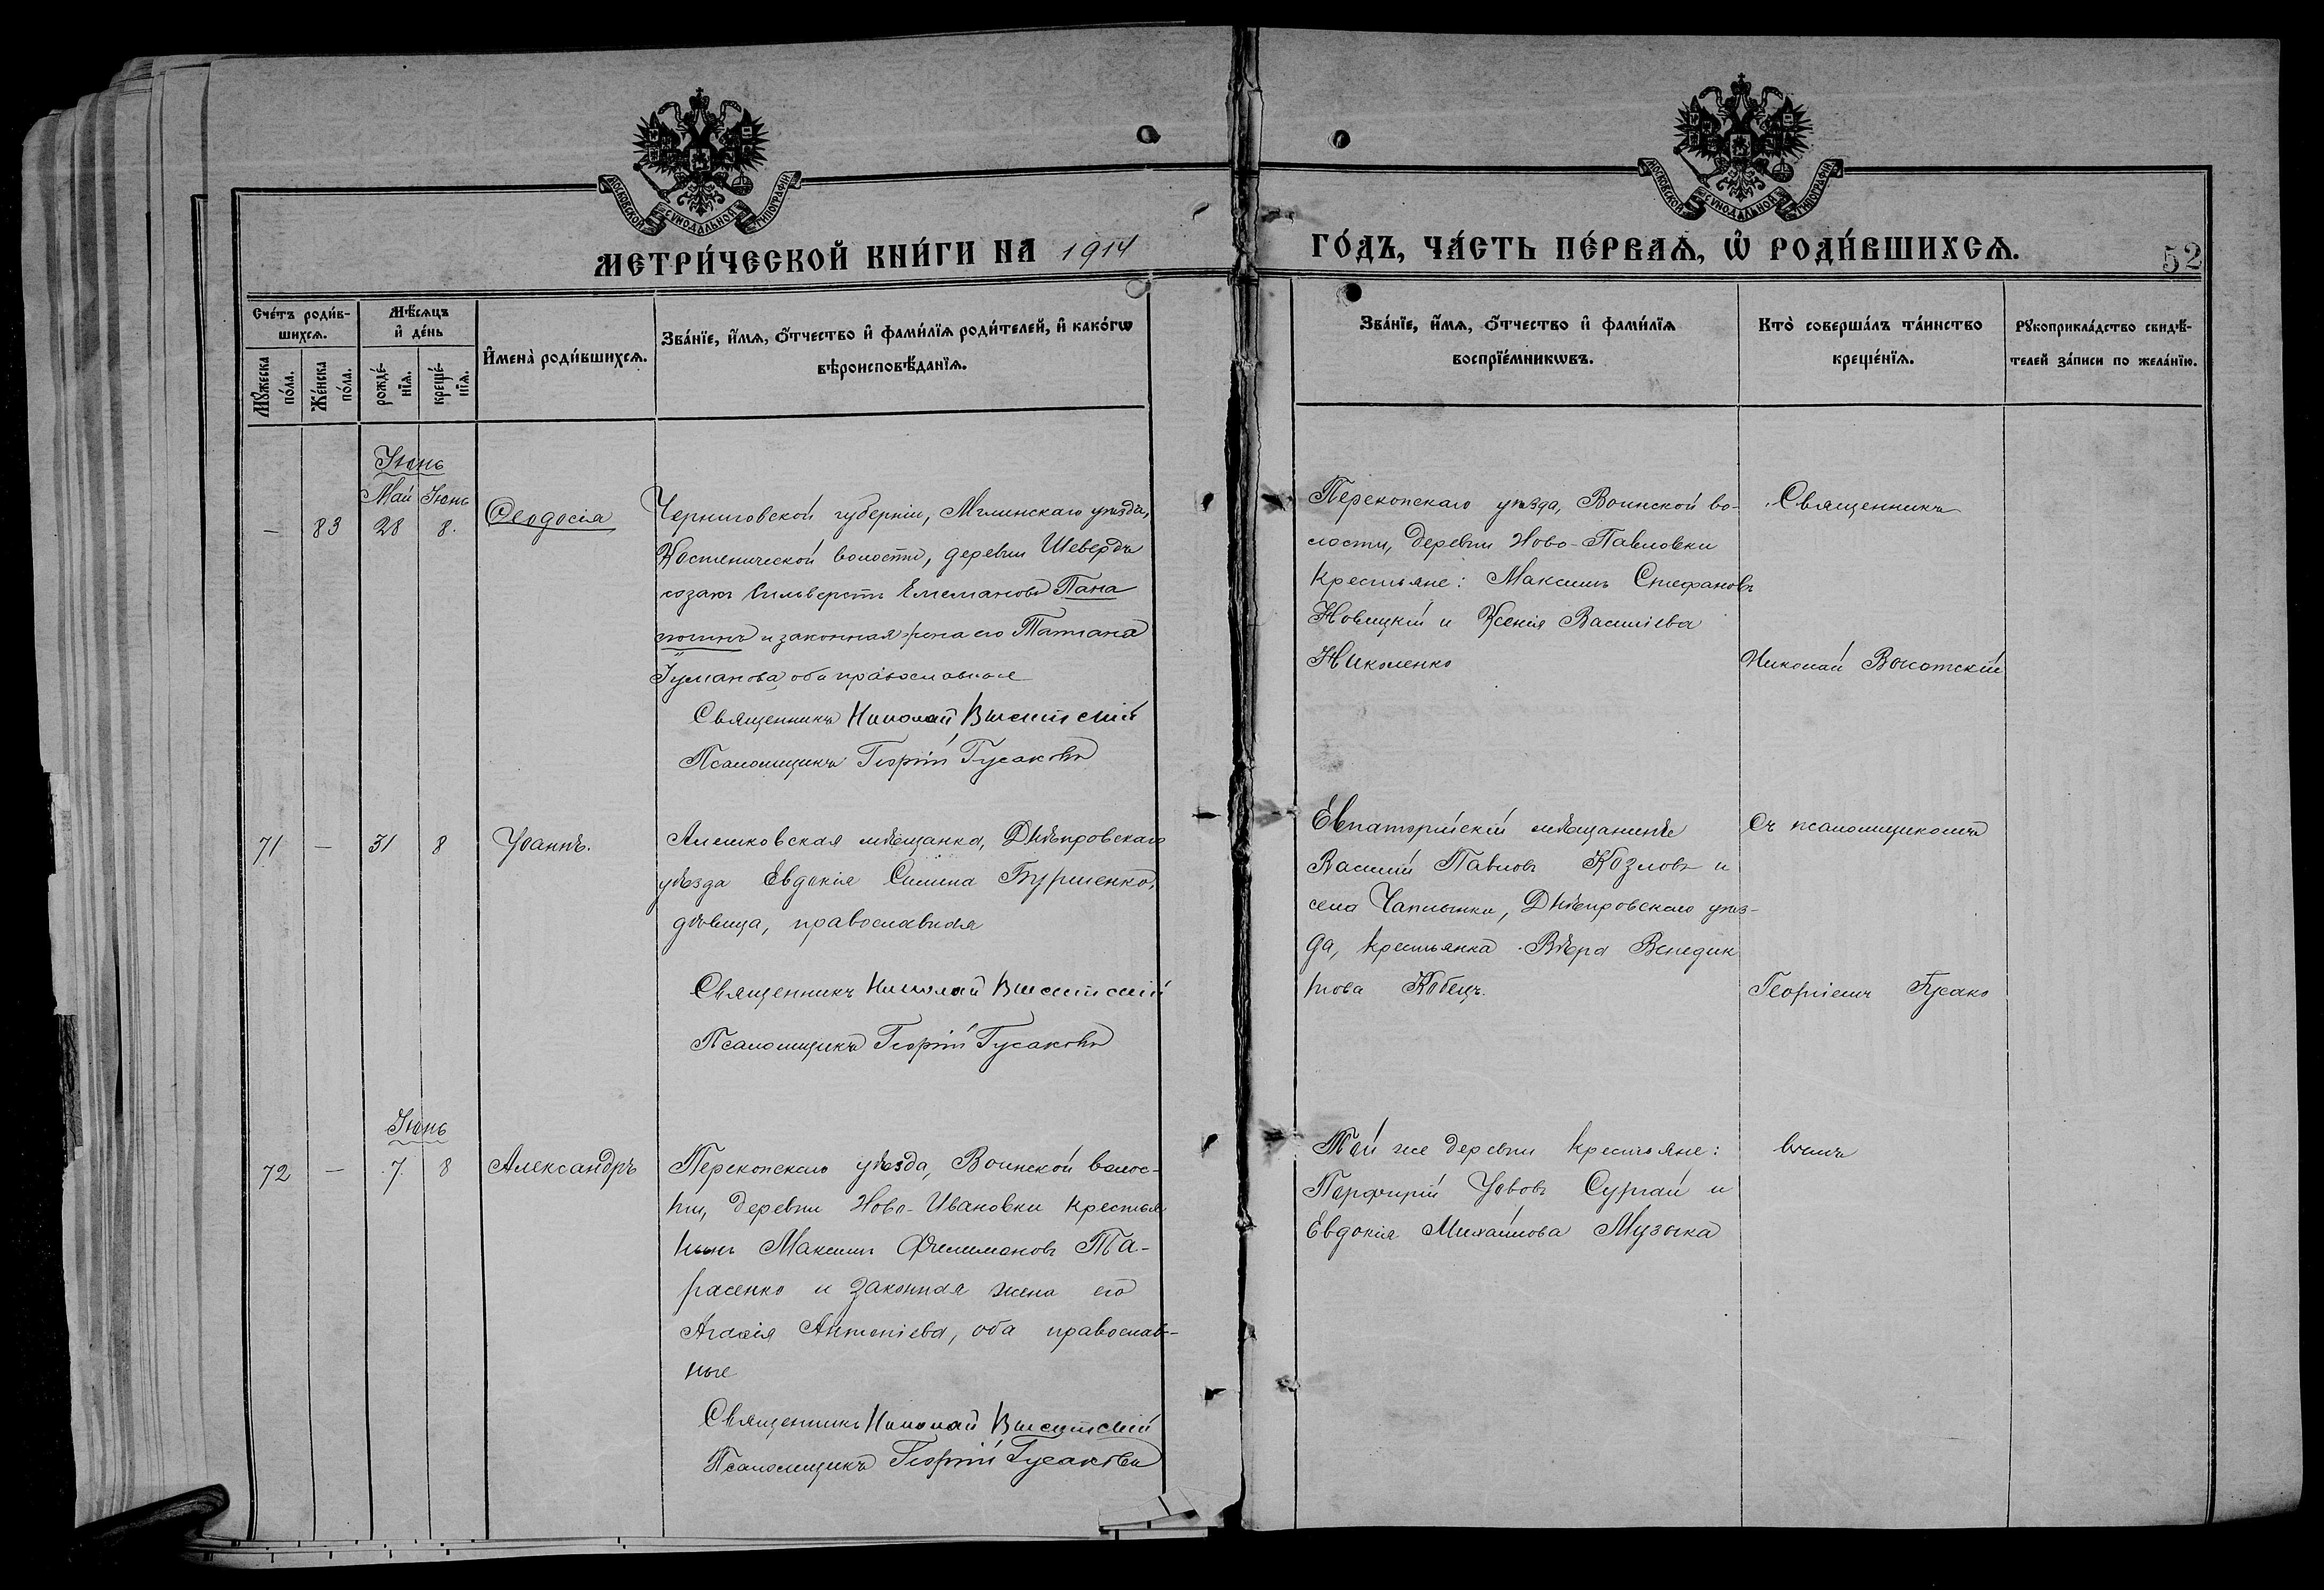 МОСКОВСКОЙ СѴНОДАЛЬНОЙ ТИПОГРАФІИ
МОСКОВСКОЙ СѴНОДАЛЬНОЙ ТИПОГРАФІИ
МЕТРИ́ЧЕСКОЙ КНИ́ГИ НА 1914
ГО́ДЪ, ЧА́СТЬ ПЕ́РВАѦ, Ѡ҆ РОДИ́ВШИХСѦ.
52
Сче́тъ роди́в-
шихсѧ.
Мꙋ́жеска по́ла.
Же́нска по́ла.
Мѣ́сѧцъ
и҆ де́нь
рожде́-
нїѧ.
креще́-
нїѧ.
И҆мена̀ роди́вшихсѧ.
Зва́нїе, и҆́мѧ, ѻ҆́тчество и҆ фами́лїѧ роди́телей, и҆ како́гѡ
вѣроисповѣ́данїѧ.
Зва́нїе, и҆́мѧ, ѻ҆́тчество и҆ фами́лїѧ
воспрїе́мникѡвъ.
Кто̀ соверша́лъ та́инство
креще́нїѧ.
Рꙋкоприкла́дство свидѣ́-
телей за́писи по жела́нїю.
Іюнь
Май Іюнь
— 83 28 8. Ѳеодосія
Черниговской губерніи, Мглинскаго уѣзда,
Костенической волости, деревни Шевердъ
козакъ Сильверстъ Емельяновъ Пана
и законная жена его Татіана
оба православные
Священникъ Николай Высотскій
Псаломщикъ Георгій Гусаковъ
Перекопскаго уѣзда, Воинской во-
лости, деревни Ново-Павловки
крестьяне: Максимъ Стефановъ
Новицкій и Ксенія Василіева
Николенко
Священникъ
Николай Высотскій
71 — 31 8 Іоаннъ.
Алешковская мѣщанка, Днѣпровскаго
уѣзда Евдокія Силина Бурменко,
дѣвица, православная
Священникъ Николай Высотскій
Псаломщикъ Георгій Гусаковъ
Евпаторійскій мѣщанинъ
Василій Павловъ Козловъ и
села Чаплынки, Днѣпровскаго уѣз-
да, крестьянка Вѣра Венедик
това Кобецъ.
Съ псаломщикомъ
Георгіемъ Гусако
Іюнь
72 — 7. 8 Александръ
Перекопскаго уѣзда, Воинской волос-
ти, деревни Ново-Ивановки крестья
нинъ Максимъ Филимоновъ Та-
расенко и законная жена его
Агафія Антоніева, оба православ-
ные
Священникъ Николай Высотскій
Псаломщикъ Георгій Гусаковъ
Той же деревни крестьяне:
Порфирій Іововъ Сургай и
Евдокія Михайлова Музыка
вымъ